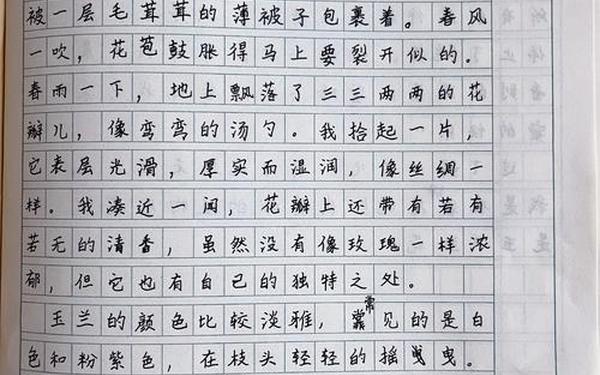 被一层毛茸茸的薄被子包裹着。春风
一吹，花苞鼓胀得马上要裂开似的。
春雨一下，地上飘落了三三两两的花
瓣儿，像弯弯的汤勺。我拾起一片，
它表层光滑，厚实而湿润，像丝绸一
样。我凑近一闻，花瓣上还带有若有
若无的清香，虽然没有像玫瑰一样浓
郁，但它也有自己的独特之处。
玉兰的颜色比较淡雅，常见的是白
色和粉紫色，在枝头轻轻的摇曳曳。